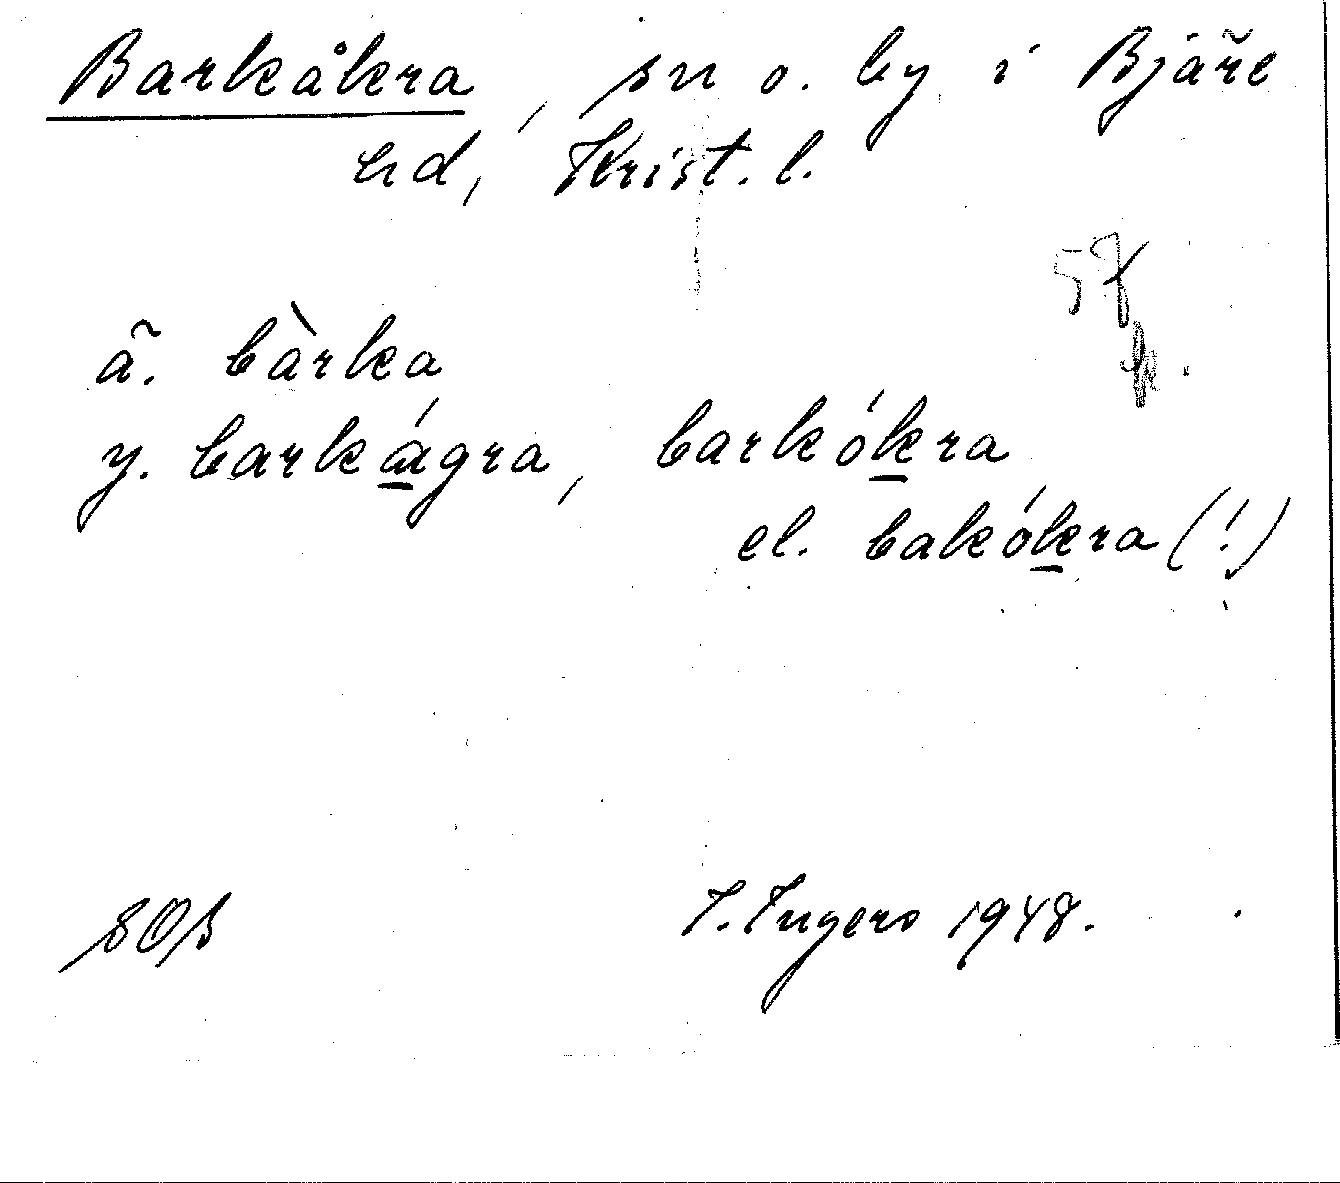 Barkåkra, sn o. by i Bjäre
hd, Krist. l.
ä. bàrka
y. barkágra, barkókra
el. bakókra (!)
SOB I. Ingers 1948.